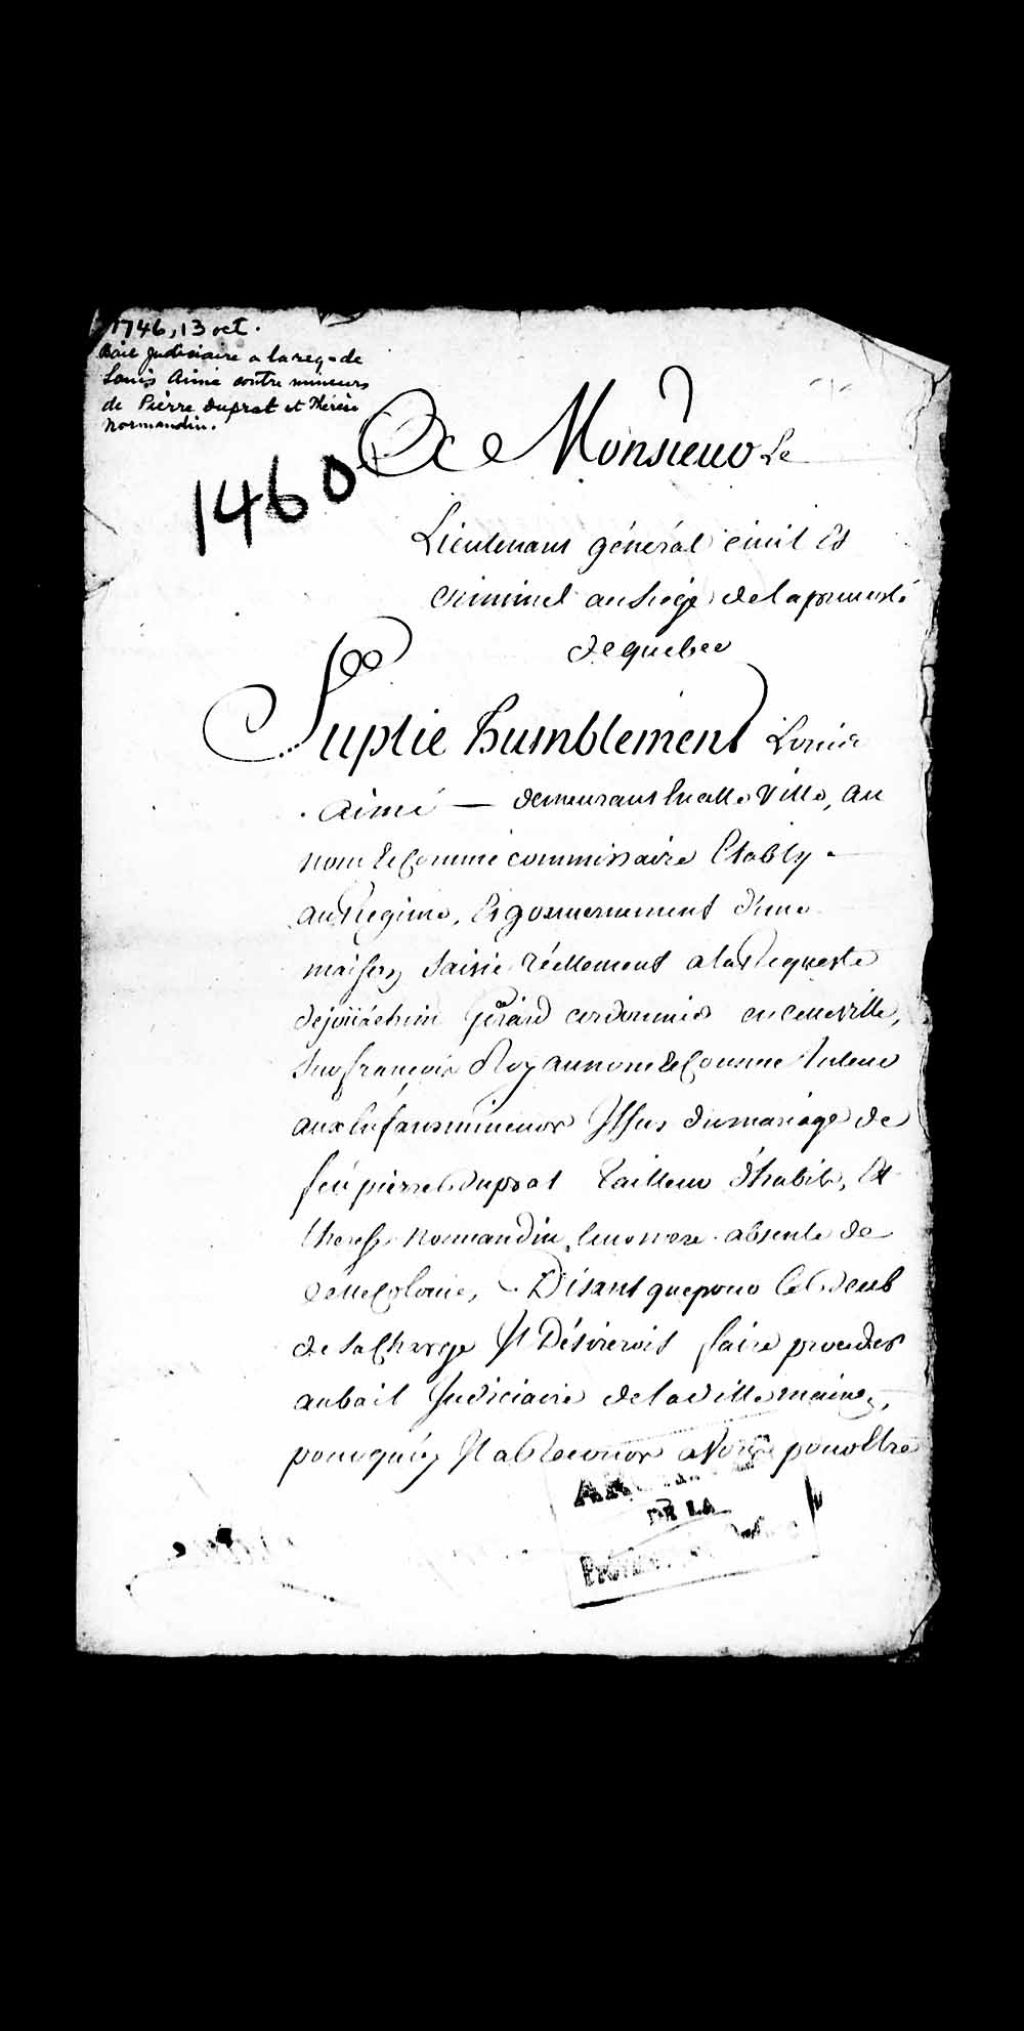 1746, 13 oct.
Bail Judiciaire a la req. de
Louis Aimé contre mineurs
de Pierre Duprat et Thérèse
Normandin.
1460
A Monsieur Le
Lieutenant général civil Et
Criminel au Siege de la prevosté
de quebec
Suplie humblement Louis
Aimé — demeurant En cette Ville, au
nom & Comme commissaire Etably
au Regime, Et gouvernement d'une
maison Saisie réellement a la Requeste
de joüachim Gerard cordonnier en cette ville,
Sur françois Roy au nom & Comme Tuteur
aux Enfans mineurs Issus du mariage de
feu pierre duprat Tailleur d'habits, Et
therese normandin, absente de
Cette Colonie, Disant que pour le
de sa Charge Il Désireroit faire proceder
au bail Judiciaire de la
pourquoy Il a Recours a Vous pour Etre
DE LA